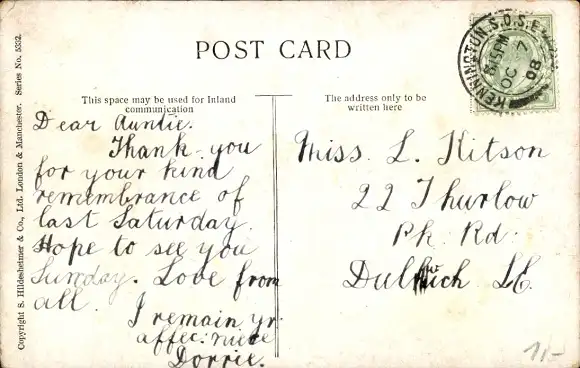 POST CARD
Copyright S. Hildesheimer & Co., Ltd. London & Manchester. Series No. 5332.
This space may be used for Inland
communication
Dear Auntie.
Thank you
for your kind
remembrance of
last Saturday
Hope to see you
Sunday. Love from
all.
I remain yr
affec: niece
Dorrie.
The address only to be
written here
Miss. L. Kitson
22 Thurlow
Pk. Rd.
Dulwich S.E.
KENNINGTON.S.O.S.E.
8.15PM
OC 7
08
11/-